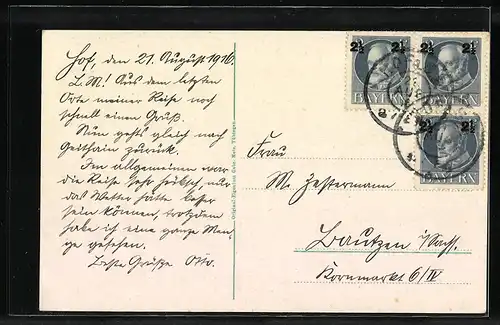 Hof, den 21. August 1916.
L. M! Aus dem letzten
Orte meiner Reise noch
schnell einen Gruß.
Nun gehts gleich nach
Geithain zurück.
Im allgemeinen war
die Reise sehr hübsch, nur
das Wetter hätte besser
sein können, trotzdem
habe ich eine ganze Men
ge gesehen.
Beste Grüße Otto.
2½ 2½ 2½ 2½
BAYERN BAYERN
2½ 2½
BAYERN
Frau
M. Zestermann
Bautzen i/Sachs.
Kornmarkt 6/IV